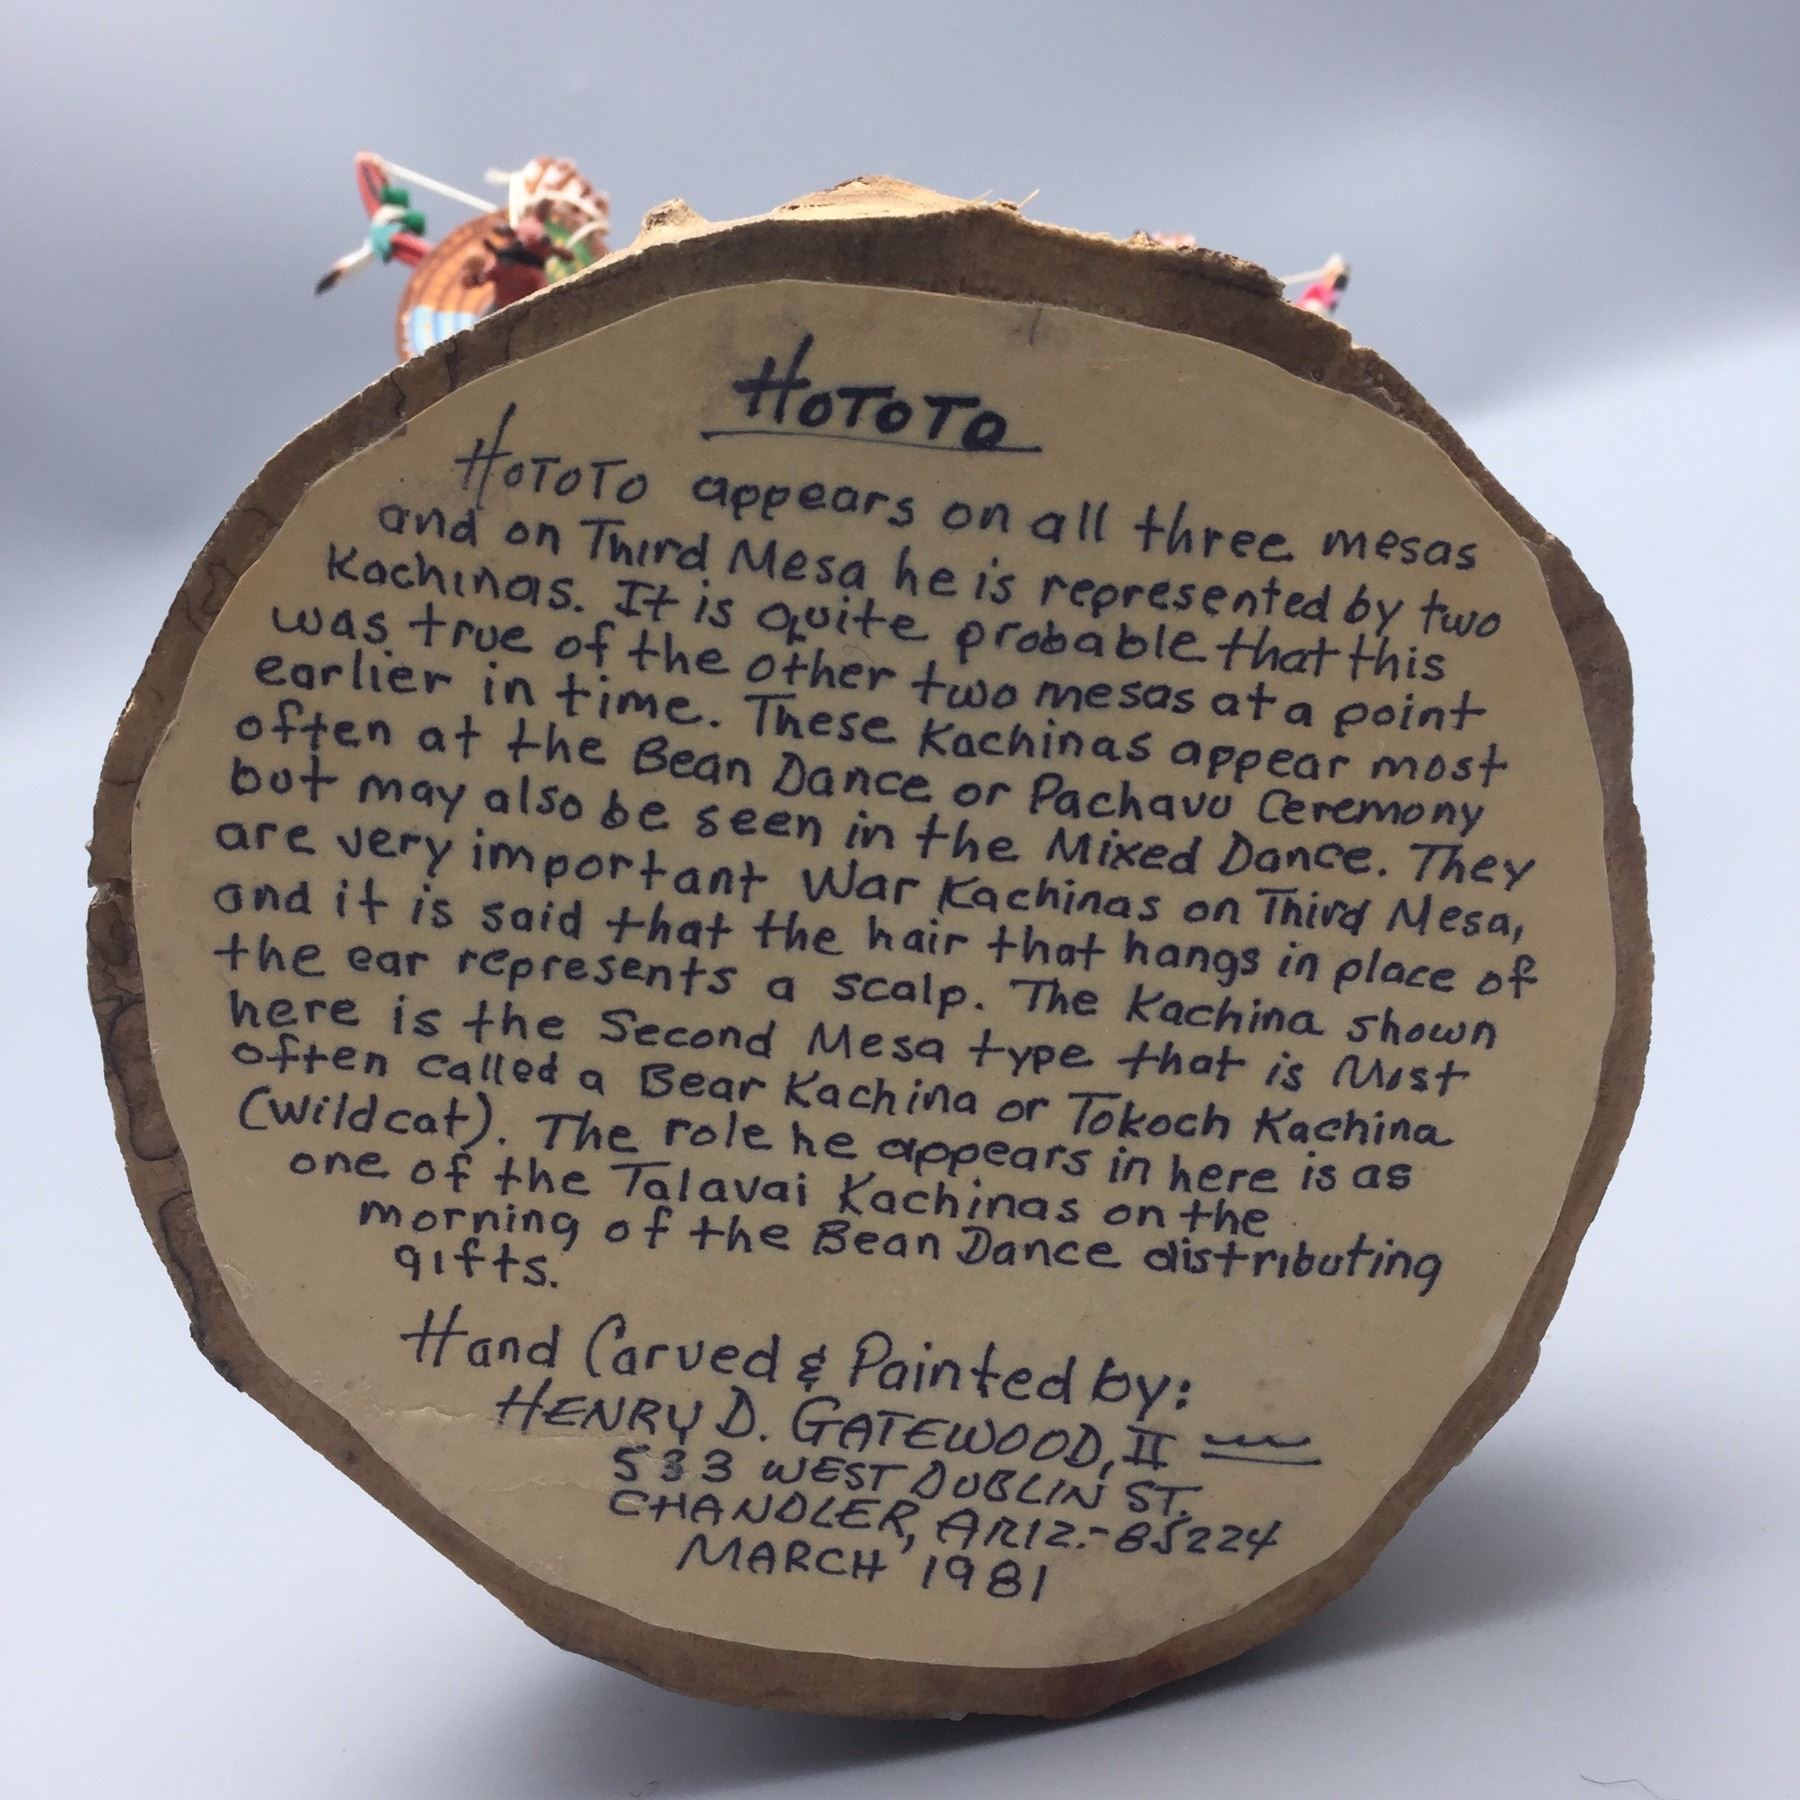 HOTOTO
HOTOTO appears on all three mesas
and on Third Mesa he is represented by two
Kachinas. It is quite probable that this
was true of the other two mesas at a point
earlier in time. These Kachinas appear most
often at the Bean Dance or Pachavu Ceremony
but may also be seen in the Mixed Dance. They
are very important War Kachinas on Third Mesa,
and it is said that the hair that hangs in place of
the ear represents a scalp. The Kachina shown
here is the Second Mesa type that is Most
often called a Bear Kachina or Tokoch Kachina
(Wildcat). The role he appears in here is as
one of the Talavai Kachinas on the
morning of the Bean Dance distributing
gifts.
Hand Carved & Painted by:
HENRY D. GATEWOOD, II
533 WEST DUBLIN ST.
CHANDLER, ARIZ.-85224
MARCH 1981